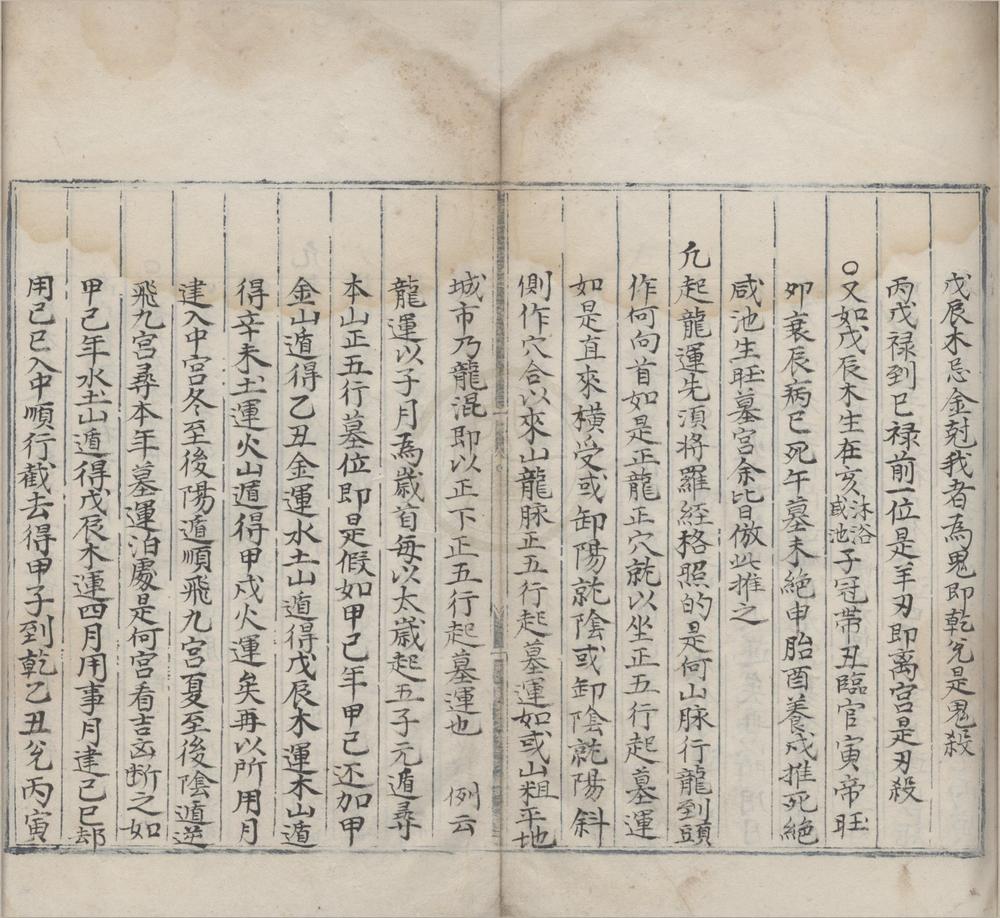 戊辰木忌金尅我者為鬼即乾兊是鬼殺
丙戊禄到巳禄前一位是羊刃即离宫是刃殺
○又如戊辰木生在亥沐浴咸池子冠帶丑臨官寅帝旺
夘衰辰病巳死午墓未絶申胎酉養戍推死絶
咸池生旺墓宫余比皆倣此推之
凢起龍運先湏將羅經格照的是何山脉行龍到頭
作何向首如是正龍正穴就以坐正五行起墓運
如是直來横受或卸陽就陰或卸陰就陽斜
側作穴合以來山龍脉正五行起墓運如或山粗平地
城市乃龍混即以正下正五行起墓運也　例云
龍運以子月為歳首每以太歳起五子元遁尋
本山正五行墓位即是假如甲己年甲己还加甲
金山遁得乙丑金運水土山遁得戊辰木運木山遁
得辛未土運火山遁得甲戍火運矣再以所用月
建入中宫冬至後陽遁順飛九宫夏至後陰遁逆
○飛九宫尋本年墓運泊處是何宫看吉凶断之如
甲己年水土山遁得戊辰木運四月用事月建己巳却
用己巳入中順行截去得甲子到乾乙丑兊丙寅